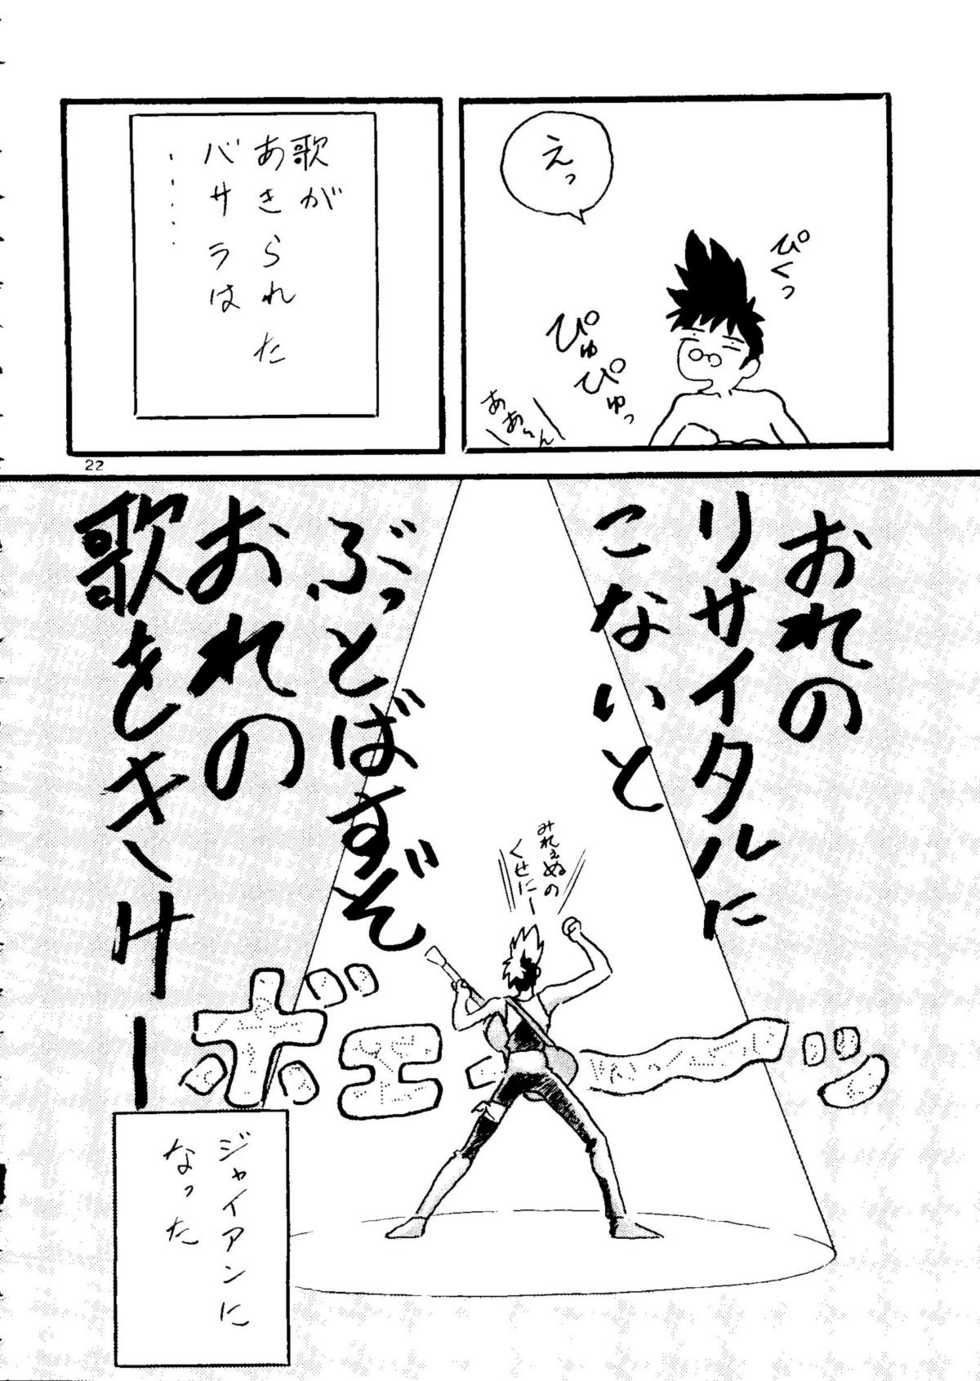 えっ
ぴくっ
ぴゅ
ぴゅっ
ああ〜ん
歌が
あきられた
バサラは
・・・・・
22
おれの
リサイタルに
こないと
ぶっとばすぞ
おれの
歌をきけー
みれぇぬの
くせにー
ボエ〜〜ッ
ジャイアンに
なった